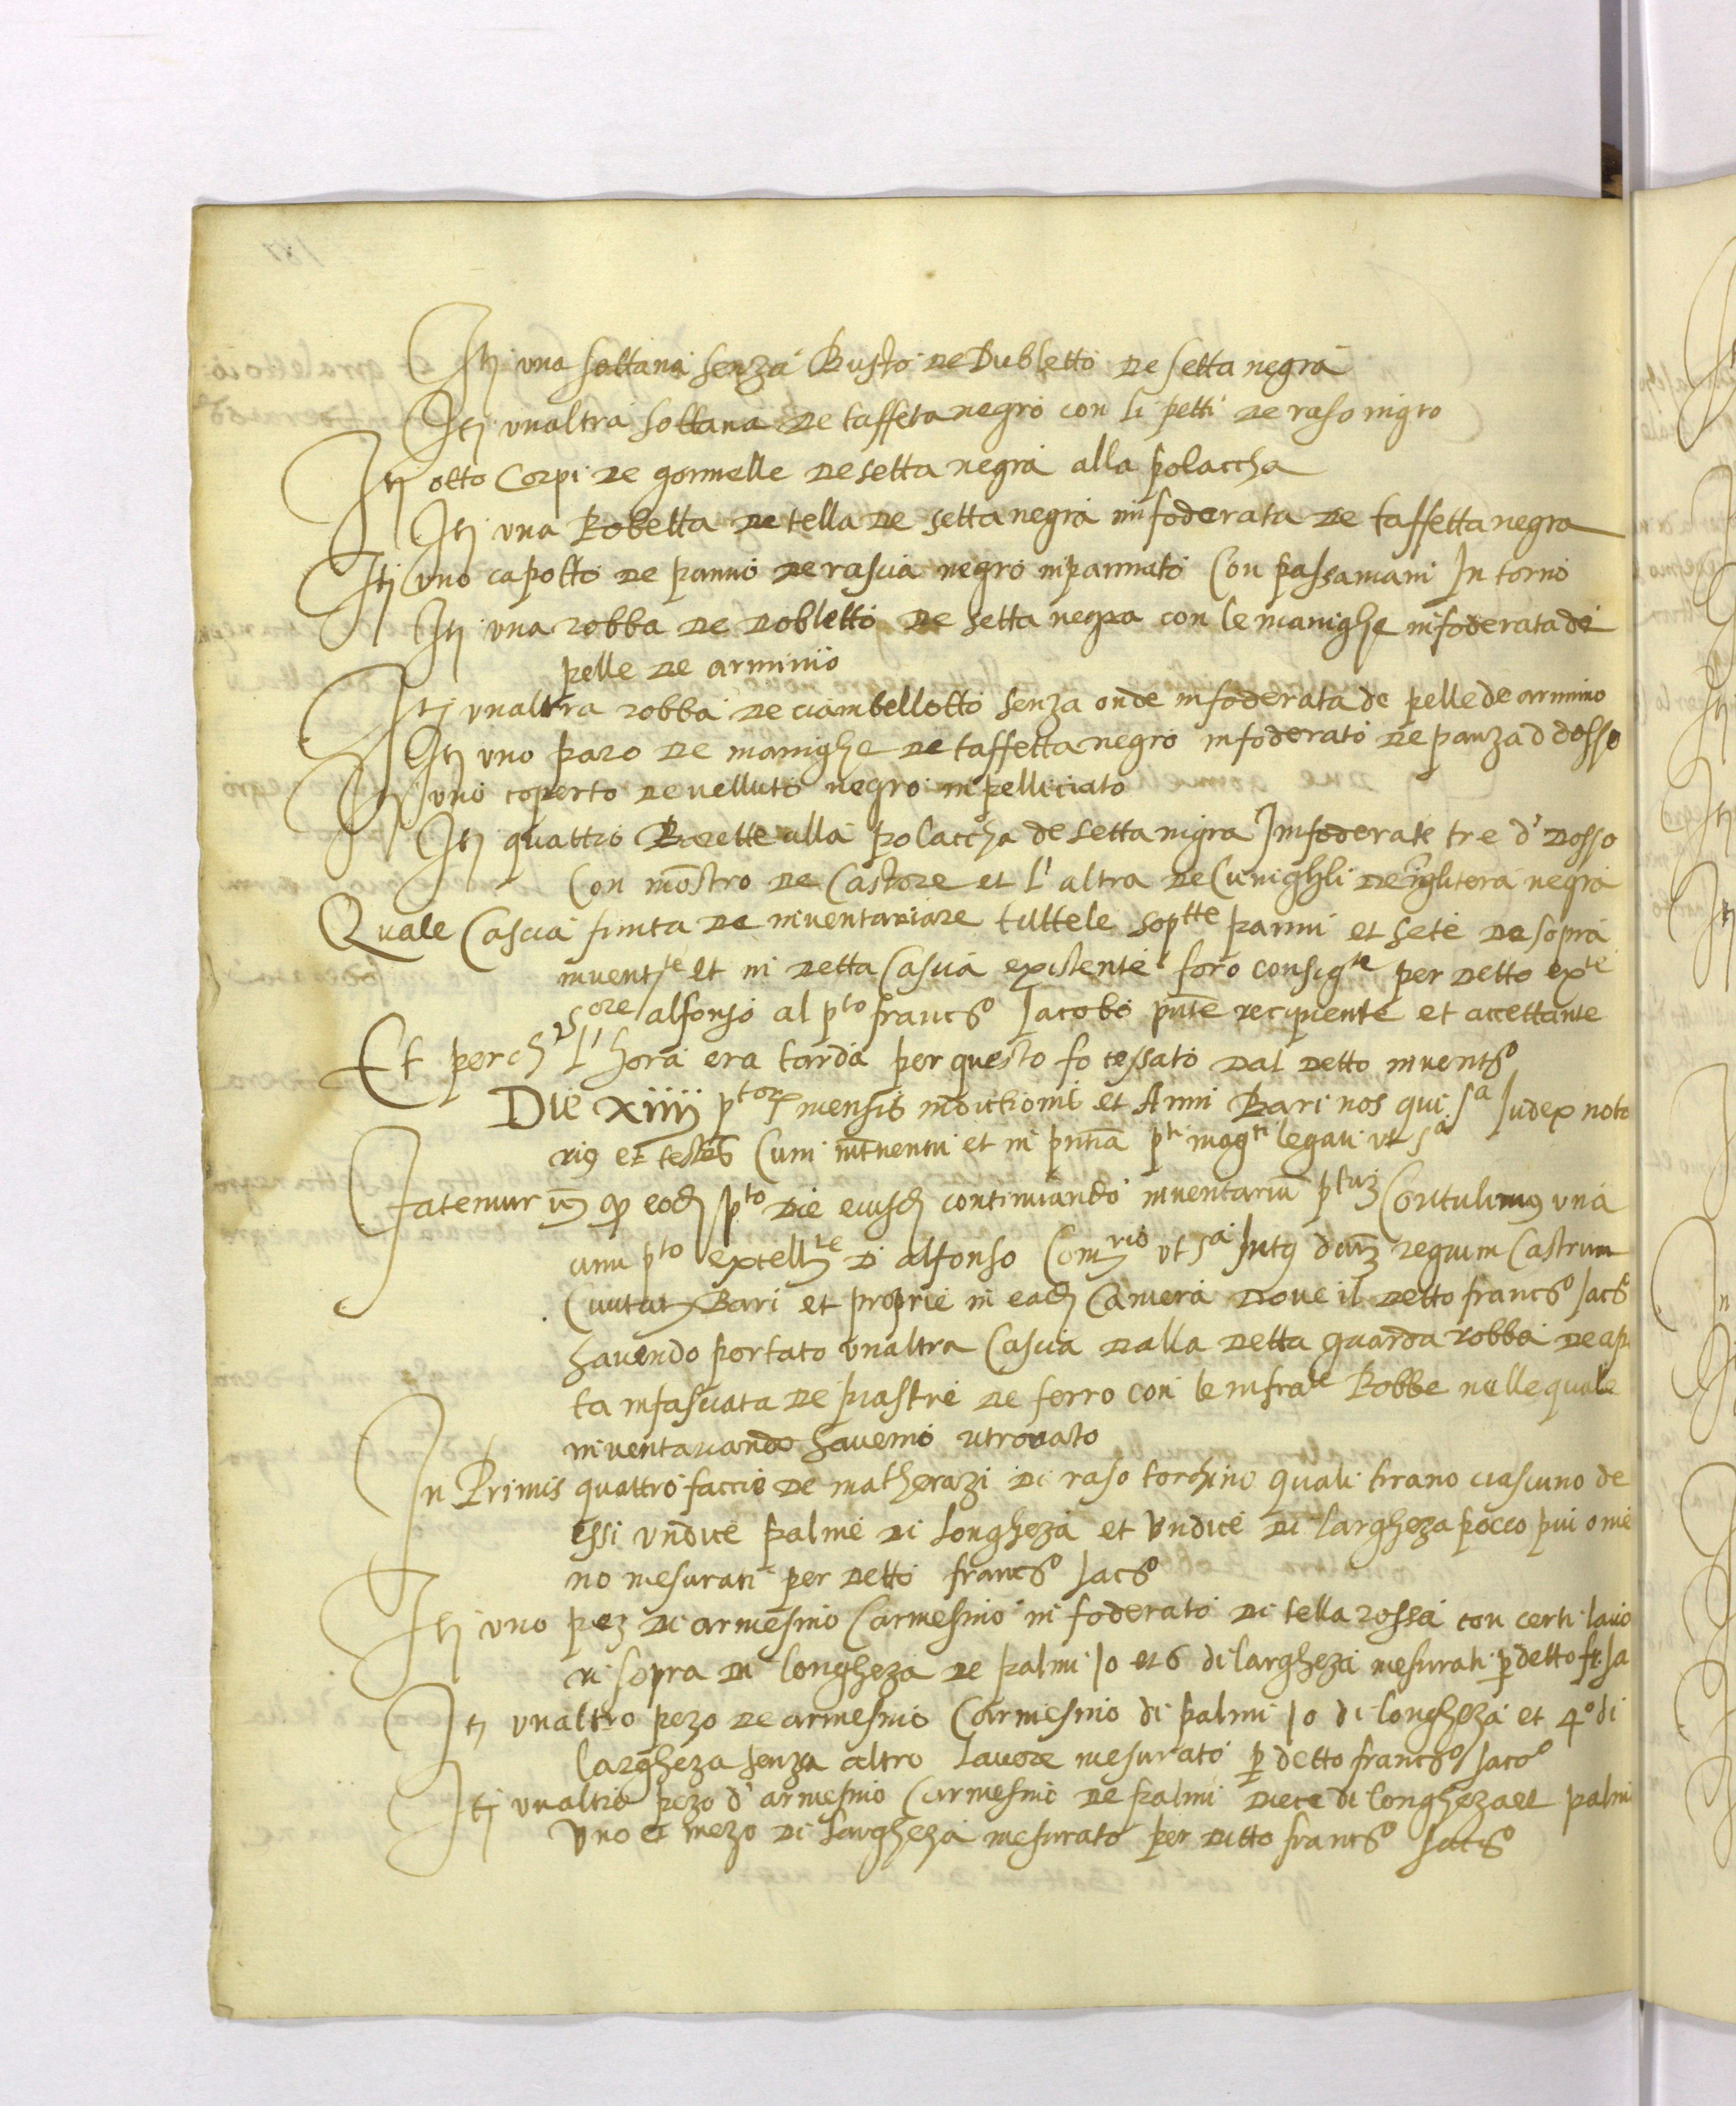 Itj una sottana senza Busto de Dubletto de setta negra
Itj unaltra sottana de taffeta negro con li petti de raso nigro
Itj otto Corpi de gonnelle de setta negra alla polaccha
Itj una Robetta de tella de setta negra infoderata de taffetta negra
Itj uno capotto de panno de rascia negro inpannato Con passamani In torno
Itj una robba de dobletto de setta negra con le manighe infoderata de
pelle de arminio
Itj unaltra robba de ciambellotto senza onde infoderata de pelle de armino
Itj uno paro de manighe de taffetta negro infoderato de panza d dosso
Itj uno coperto de velluto negro inpelliciato
Itj quattro Barette alla polaccha de setta nigra Infoderate tre d' dosso
Con mostro de Castore et l' altra de Cunighli de Inglitera negra
Quale Cascia finita de inventariare tutte le sop^tte panni et sete de sopra
invent^te et in detta Cascia existente foro consig^te per detto ex^te
S^ore alfonso al p^to franc^o Jacobo pnte recipiente et accettante
Et perch l' hora era tarda per questo fo cessato dal detto invent^o
Die xiiij p^tor mensis indictionis et Anni Bari nos qui s^a Judex nota
rius et testes Cum intventu et in pntia p^ti mag^ci legati ut s^a
Fatemur q eod p^to die eiusd continuando inventarium p^tum Contulimus una
cum p^to excell^te D alfonso Com^rio ut s^a Intus dictum regium Castrum
Civitatis Bari et proprie in ead Camera dove il detto franc^o Jac^o
havendo portato unaltra Cascia dalla detta guarda robba de ap
ta infasciata de piastre de ferro con le infra^te Robbe nelle quale
inventariando havemo ritrovato
In Primis quattro faccie de matherazi di raso torchino quali tirano ciascuno de
essi undice palme di longheza et undice di largheza pocco piu o me
no mesurati per detto franc^o Jac^o
Itj uno pez di armesino Carmesino infoderato di tella rossa con certi lavo
ri sopra di longheza de palmi 10 et 6 di largheza mesurati p detto fr. Ja
Itj unaltro pezo de armesino Carmesino di palmi 10 di longheza et 4° di
largheza senza altro lavore mesurato p detto franc^o Jaco^o
Itj unaltro pezo d' armesino Carmesino de palmi diece di longheza et palmi
uno et mezo di largheza mesurato per ditto franc^o Jac^o